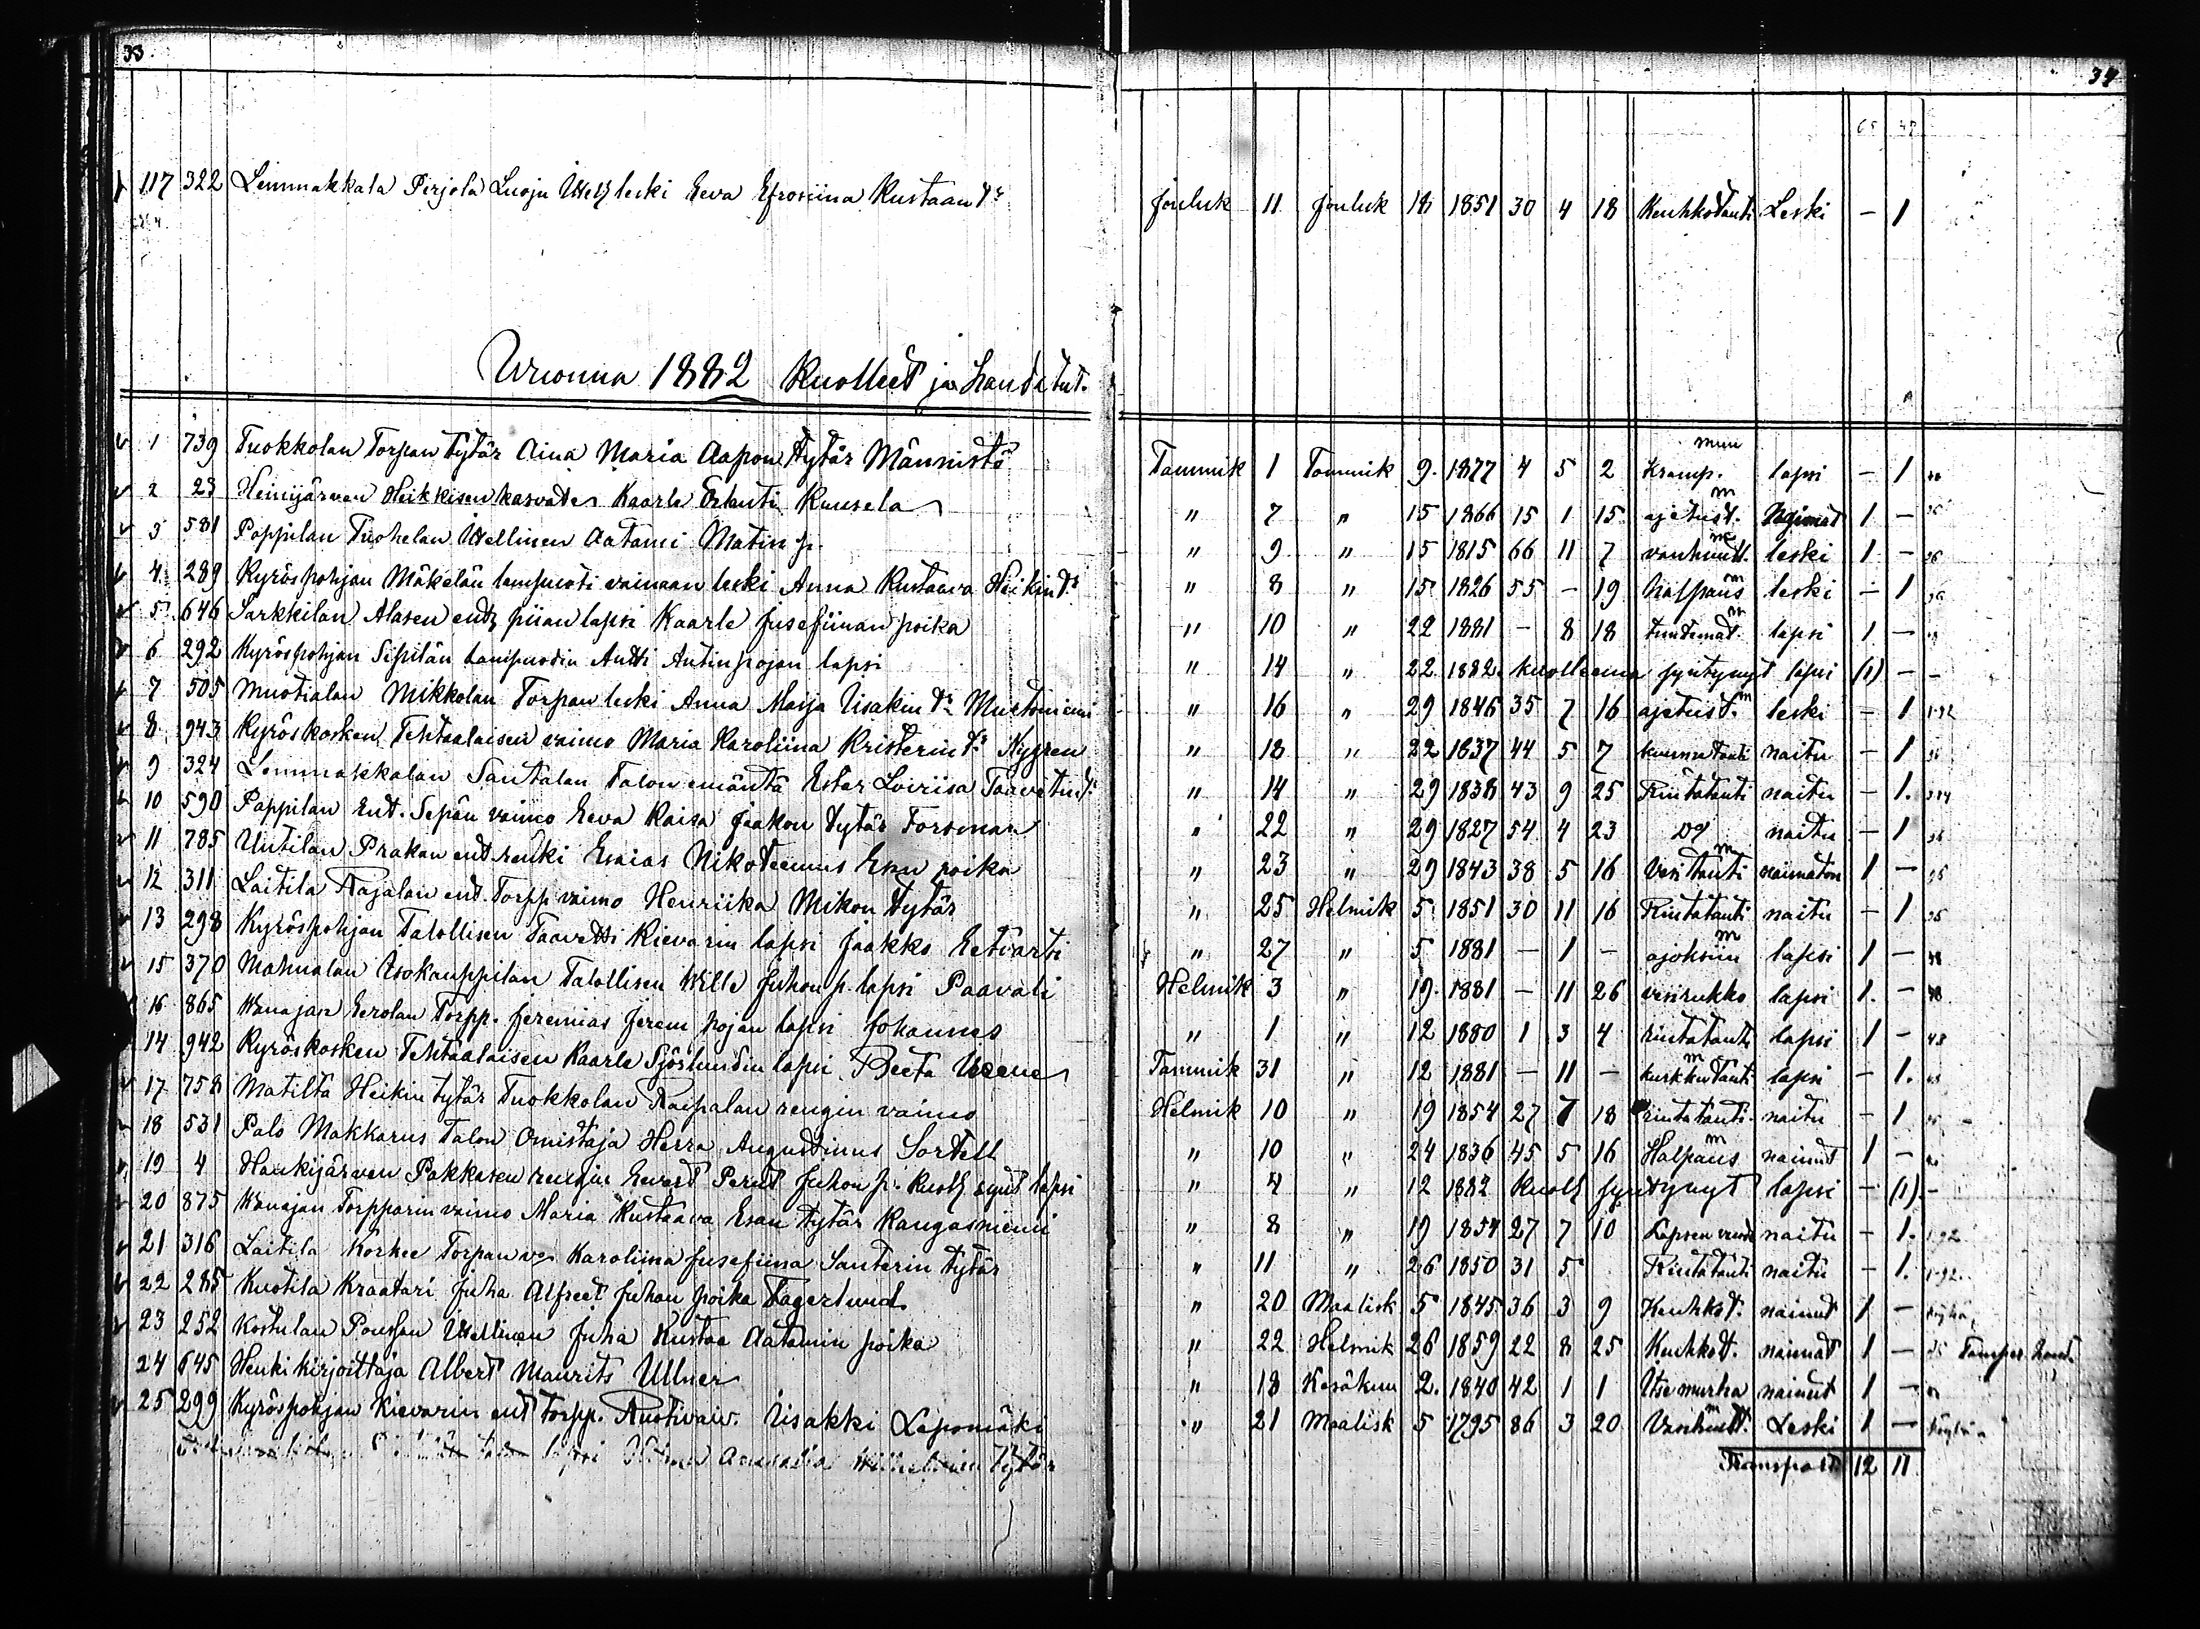 33
34
65 47
117 322 Lemmakkala Pirjola Luoju Itsell leski Eeva Efrosiina Kustaan tr Jouluk 11 Jouluk 18 1851 30 4 18 Keuhkotauti Leski - 1
Wuonna 1882 Kuolleet ja haudatut.
1 739 Tuokkolan Torpan tytär Aina Maria Aapon tytär Männistö Tammik 1 Tammik 9. 1877 4 5 2 Kramp. lapsi - 1
2 23 Heinijärwen Heikkisen kasvates Kaarle Kuusela " 7 " 15 1866 15 1 15 ajetust. 1 -
3 581 Pappilan Tuohelan Itsellinen Aatami Matin p. " 9 " 15 1815 66 11 7 vanhuutt. leski 1 - 36
4 289 Kyröspohjan Mäkelän lampuoti vainaan leski Anna Kustaava Heikin tr " 8 " 15 1826 55 - 19 Halpaus leski - 1 36
5 646 Sarkkilan Alasen ent piian lapsi Kaarle Jusefiinan poika " 10 " 22 1881 - 8 18 tuntemat. lapsi 1 -
6 292 Kyröspohjan Sipilän lampuodin Antti Antinpojan lapsi " 14 " 22 1882 kuolleena syntynyt lapsi (1) - -
7 505 Muotialan Mikkolan Torpan leski Anna Maija Iisakin tr Mustoniemi " 16 " 29 1846 35 7 16 ajetust. leski - 1 1.92
8 943 Kyröskosken Tehtaalaisen vaimo Maria Karoliina Kristerin tr Nygren " 18 " 22 1837 44 5 7 naitu - 1 36
9 324 Lemmakkalan Santalan Talon emäntä Ester Loviisa Taavetin tr " 14 " 29 1838 43 9 25 Rintatauti naitu - 1.
10 590 Pappilan Ent. Sepän vaimo Eeva Kaisa Jaakon tytär Forsman " 22 " 29 1827 54 4 23 Do naitu - 1 36
11 785 Uutilan Prakan ent renki Esaias Nikoteemus Esan poika " 23 " 29 1843 38 5 16 Veritauti naimaton 1 - 36
12 311 Laitila Rajalan ent. Torpp vaimo Henriika Mikon tytär " 25 Helmik 5 1851 30 11 16 Rintatauti naitu - 1 36
13 298 Kyröspohjan Talollisen Taavetti Kievarin lapsi Jaakko Eetvarti " 27 " 5 1881 - 1 - ajoksiin lapsi 1 -
15 370 Mahnalan Isokauppilan Talollisen Wille Juhon p. lapsi Paavali Helmik 3 " 19. 1881 - 11 26 vesirukko lapsi 1. -
16 865 Wanajan Eerolan Torpp. Jeremias Jerem pojan lapsi Johannes " 1 " 12 1880 1 3 4 rintatauti lapsi 1 - 48
14 942 Kyröskosken Tehtaalaisen Kaarle Sjöslundin lapsi Beeta Tammik 31 " 12 1881 - 11 - kurkkutauti lapsi - 1.
17 758 Matilta Heikin tytär Tuokkolan Raipalan rengin vaimo Helmik 10 " 19 1854 27 7 18 rintatauti. naitu - 1
18 531 Palo Makkarus Talon Omistaja Herra Augustinus Sortell " 10 " 24 1836 45 5 16 Halpaus nainut 1 -
19 4 Haukijärwen Pakkasen rengin Ewert Pernt Juhon p. Kuoll synt lapsi " 4 " 12 1882 Kuoll syntynyt lapsi - (1) -
20 875 Wanajan Torpparin vaimo Maria Kustaava Esan tytär Kangasniemi " 8 " 19 1854 27 7 10 Lapsen naitu - 1. 1.92
21 316 Laitila Korkee Torpan vo Karoliina Jusefiina Santerin tytär " 11 " 26 1850 31 5 Rintatauti naitu - 1. 1.92
22 285 Kuotila Kraatari Juha Alfreet Juhan poika Fagerlund " 20 Maalisk 5 1845 36 3 9 Keuhkot. nainut 1 -
23 252 Kostulan Pouslan Itsellinen Juha Kustaa Aatamin poika " 22 Helmik 26 1859 22 8 25 Keuhkot. nainut 1 - Tamper. haud.
24 645 Henkikirjoittaja Albert Maurits Ullner " 18 Kesäkuu 2. 1840 42 1 1 Itsemurha nainut 1 -
25 299 Kyröspohjan Kievarin ent torpp. Ruotivaiv. Iisakki Lepomäki " 21 Maalisk 5 1795 86 3 20 Vanhuutt. Leski 1 -
lapsi Amanda Wilhelmin tytär
Transport. 12 11